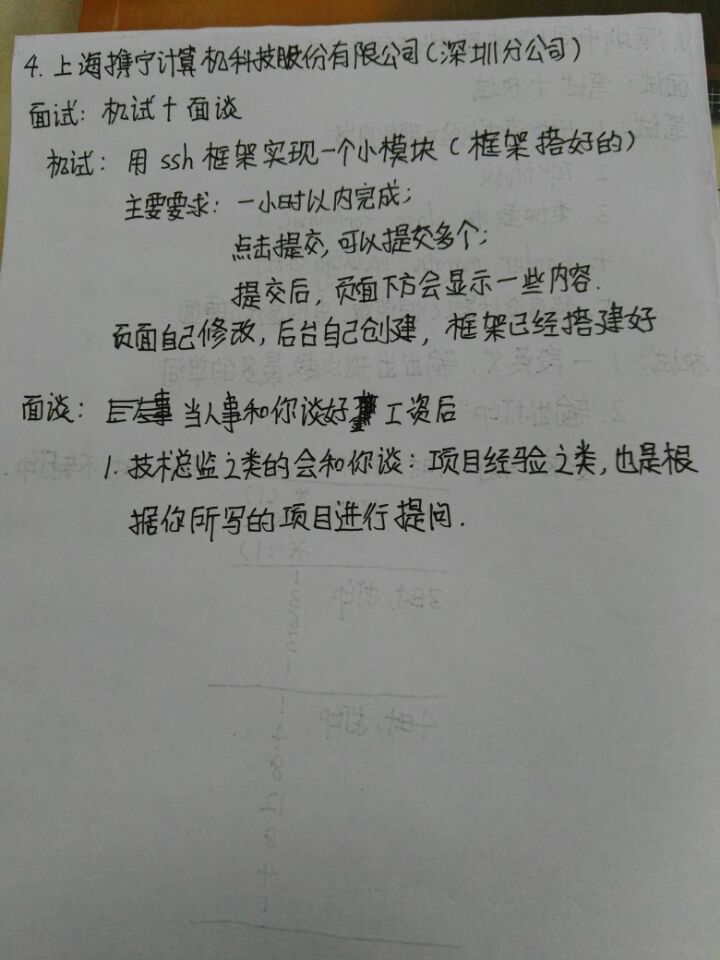 4. 上海携宁计算机科技股份有限公司(深圳分公司)
面试: 机试+面谈
机试: 用 ssh 框架实现一个小模块(框架搭好的)
主要要求: 一小时以内完成;
点击提交, 可以提交多个;
提交后, 页面下方会显示一些内容.
页面自己修改, 后台自己创建, 框架已经搭建好
面谈: 当人事和你谈好工资后
1. 技术总监之类的会和你谈: 项目经验之类, 也是根
据你所写的项目进行提问.